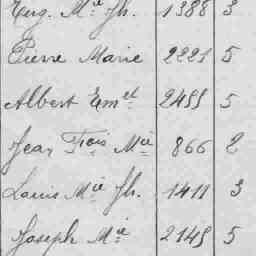 Eug. Mie Jh. 1388 3
Pierre Marie 2221 5
Albert Emel 2455 5
Jean Fois Mie 866 2
Louis Mie Jh. 1411 3
Joseph Mie 2145 5